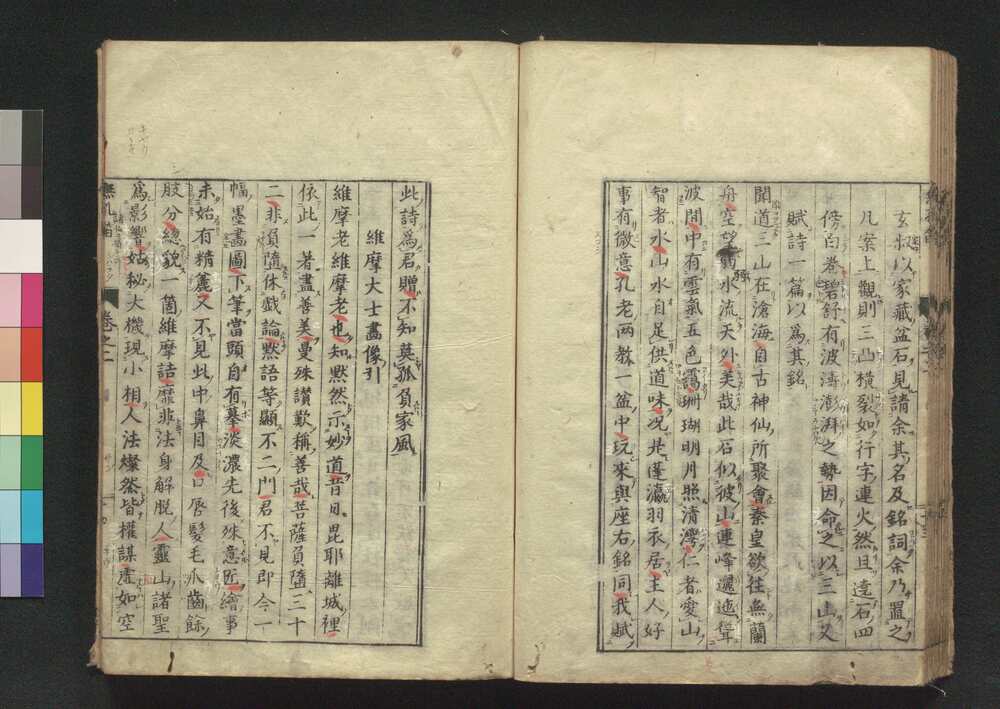 玄牧以家藏盆石見請余其名及銘詞余乃置之
几案上觀則三山橫裂如行字連火然且遶石四
傍白卷碧舒有波濤澎湃之勢因命之以三山又
賦詩一篇以爲其銘
聞道三山在滄海自古神仙所聚會秦皇欲往無蘭
舟空望弱水流天外美哉此石似彼山連峰邐迤聳
波間中有雲氣五色靄珊瑚明月照清灣仁者愛山
智者水山水自足供道味況是蓬瀛羽衣居主人好
事有微意孔老两教一盆中玩來與座右銘同我賦
此詩爲君贈不知莫孤負家風
維摩大士畫像引
維摩老維摩老也知黙然示妙道昔日毘耶離城裡
依此一著盡善美曼殊讃歎稱善哉菩薩負墮三十
二非負墮休戯論黙語等顯不二門君不見即今一
幅墨畫圖下筆當頭自有摹淡濃先後殊意匠繪事
未始有精麤又不見此中鼻目及口唇髮毛爪齒餘
肢分總貌一箇維摩詰靡非法身解脱人靈山諸聖
爲影響姑秘大機現小相人法燦然皆權謀虚如空
無孔笛
卷之二